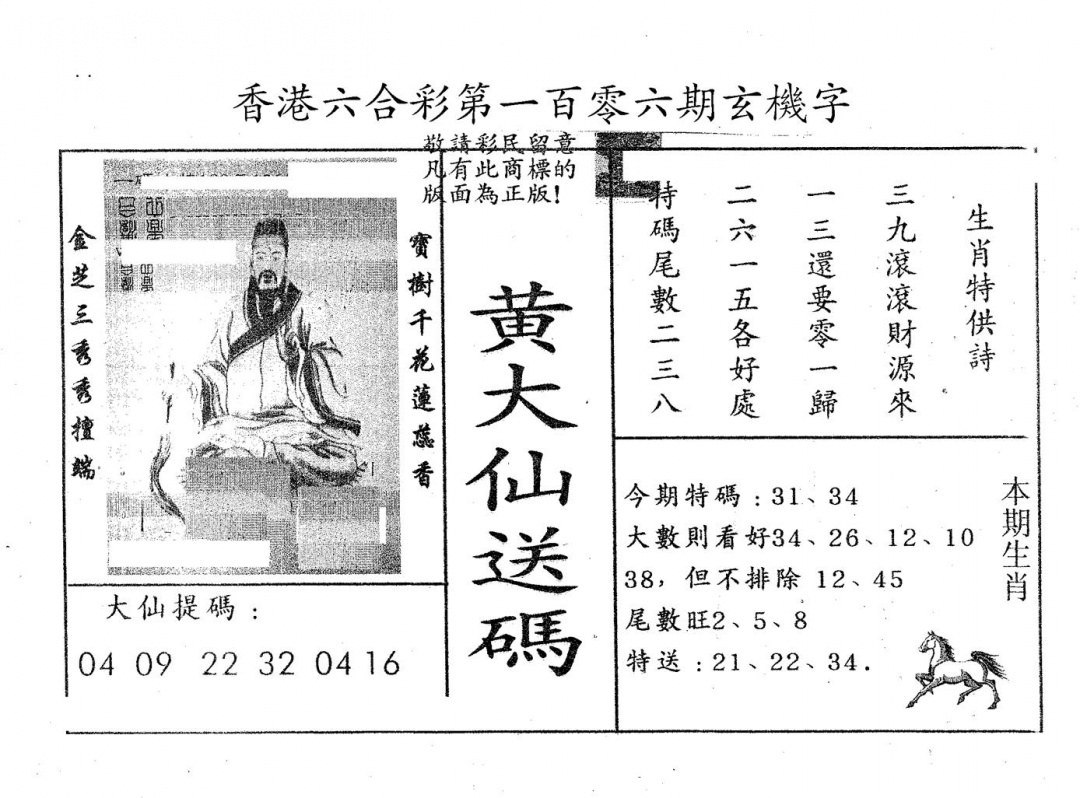 香港六合彩第一百零六期玄機字
敬請彩民留意
凡有此商標的
版面為正版!
寶樹千花蓮蕊香
金芝三秀秀擅端
黄大仙送碼
大仙提碼:
04 09 22 32 04 16
生肖特供詩
三九滾滾財源來
一三還要零一歸
二六一五各好處
特碼尾數二三八
本期生肖
今期特碼:31、34
大數則看好34、26、12、10
38,但不排除 12、45
尾數旺2、5、8
特送:21、22、34.